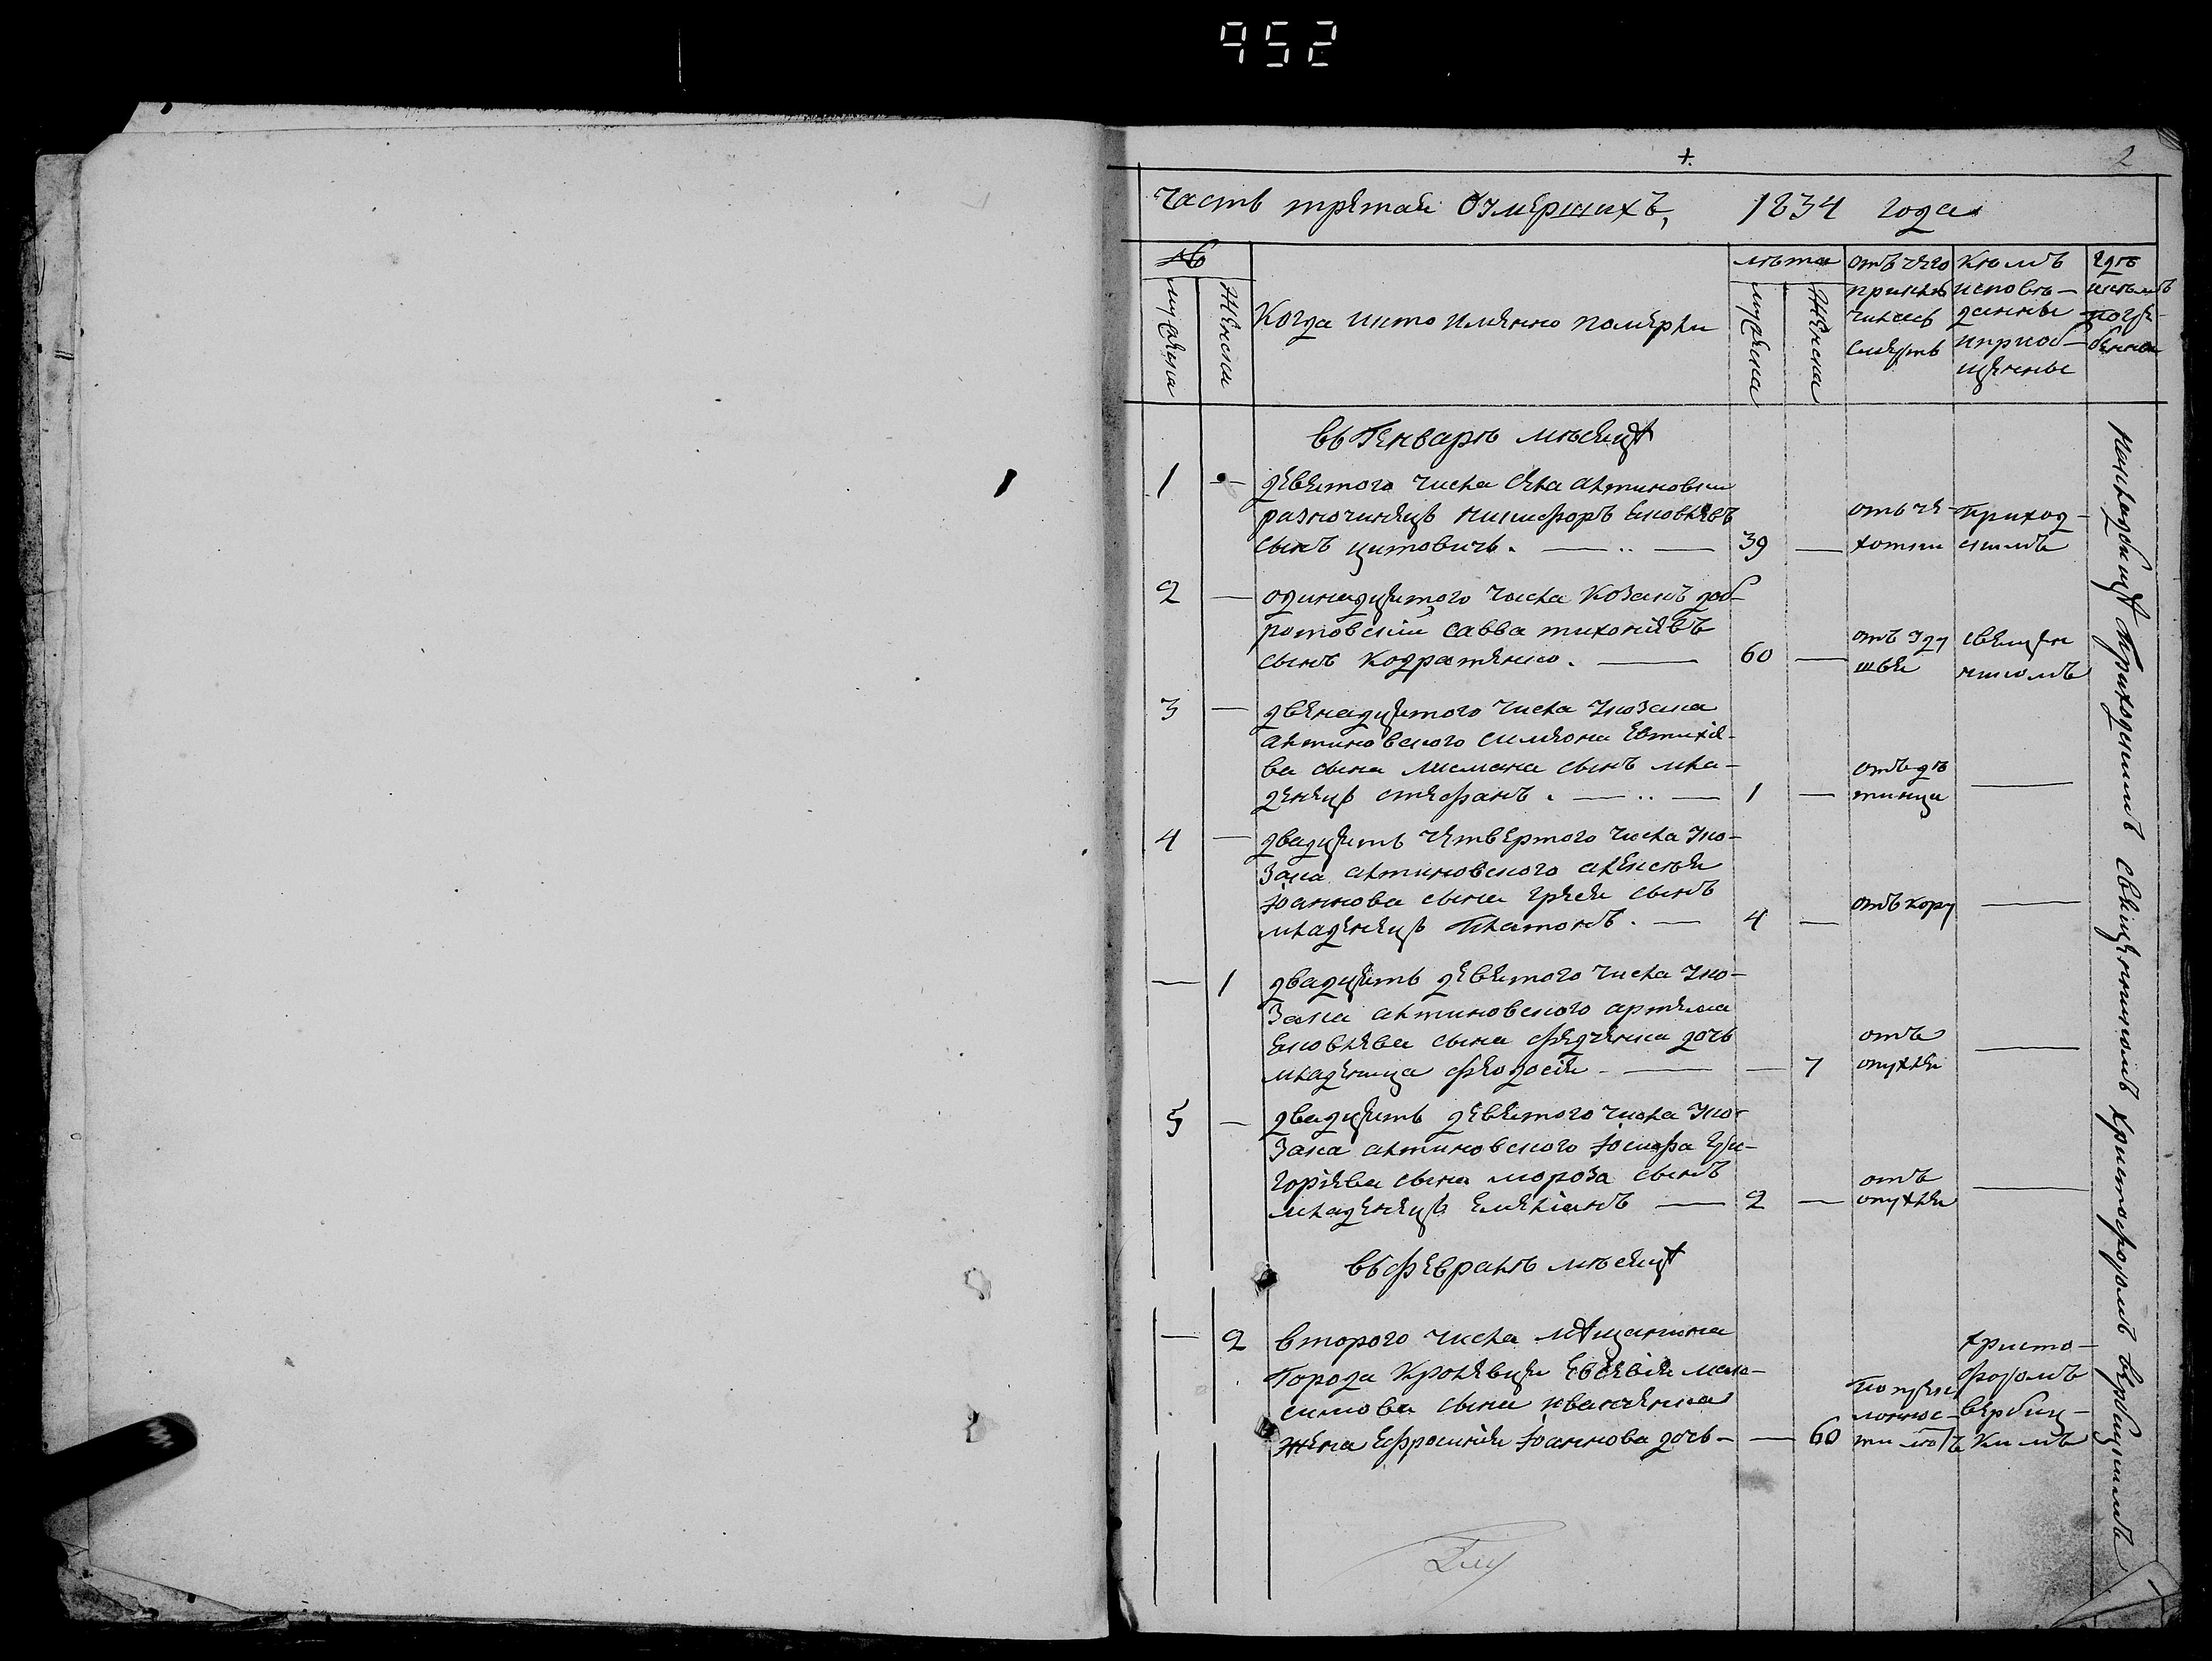 952
2
Часть третая Оумершихъ, 1834 года
№
мужеска
женска
Когда икто имянно померли
лѣта
мужеска
женска
отъ чего
приклю
чилась
смерть
Кѣмъ
исповѣ-
данны
иприоб-
щенны
гдѣ
икѣмъ
погре-
бенны
въ Генварѣ мѣсяцѣ
1 — девятого числа села алтиновки
разночинецъ никифоръ яковлевъ
сынъ цитовичъ. — 39 —
отъ че-
хотки
приход-
скимъ
2 — одинадцятого числа Козакъ доб-
ротовскій савва тихоніевъ
сынъ кодратенко. — 60 —
отъ уду
шья
священ
никомъ
3 — двенадцятого числа укозака
алтиновского симеона Евтихіе-
ва сына сынъ мла-
денецъ стефанъ. — 1 —
отъ дѣ
тинца
—
4 — двадцять четвертого числа уко-
зака алтиновского алексѣя
Іоаннова сына сынъ
младенецъ Платонъ. — 4 —
отъ кору
—
— 1 двадцять девятого числа уко-
зака алтиновского артема
яковлева сына федченка дочь
младеница феодосія — — 7
отъ
опухли
—
5 — двадцять девятого числа уко-
зака алтиновского Іосифа гри-
горіева сына мороза сынъ
младенецъ Емеліанъ — 2 —
отъ
опухли
—
въ февралѣ мѣсяцѣ
— 2 второго числа мѣщанина
Города Кролевця Евсевія мак-
симова сына иванченка
жена Ефросинія Іоаннова дочь — — 60
по
ти лѣтъ
христо-
форомъ
вербиц-
кимъ
накладбищѣ Приходскимъ священникомъ христофоромъ вербицкимъ